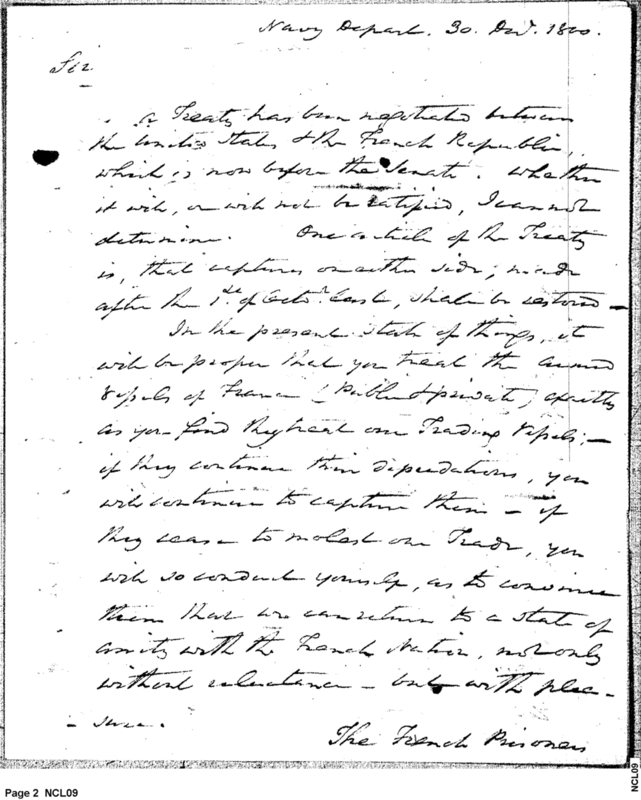 Navy Depart. 30. Decr. 1800.
Sir
a Treaty has been negotiated between
the United States & the French Republic,
which is now before the Senate. Whether
it will, or will not be ratified, I cannot
determine. One article of the Treaty
is, that captures on either side, made
after the 1st. of Octor. last, shall be restored —
In the present state of things, it
will be proper that you treat the armed
Vessels of France (Public & private) exactly
as you find they treat our Trading Vessels; —
if they continue their depredations, you
will continue to capture them — if
they cease to molest our Trade, you
will so conduct yourself, as to convince
them that we can return to a state of
amity with the French Nation, not only
without reluctance — but with plea-
- sure.
The French Prisoners
Page 2 NCL09
NCL09